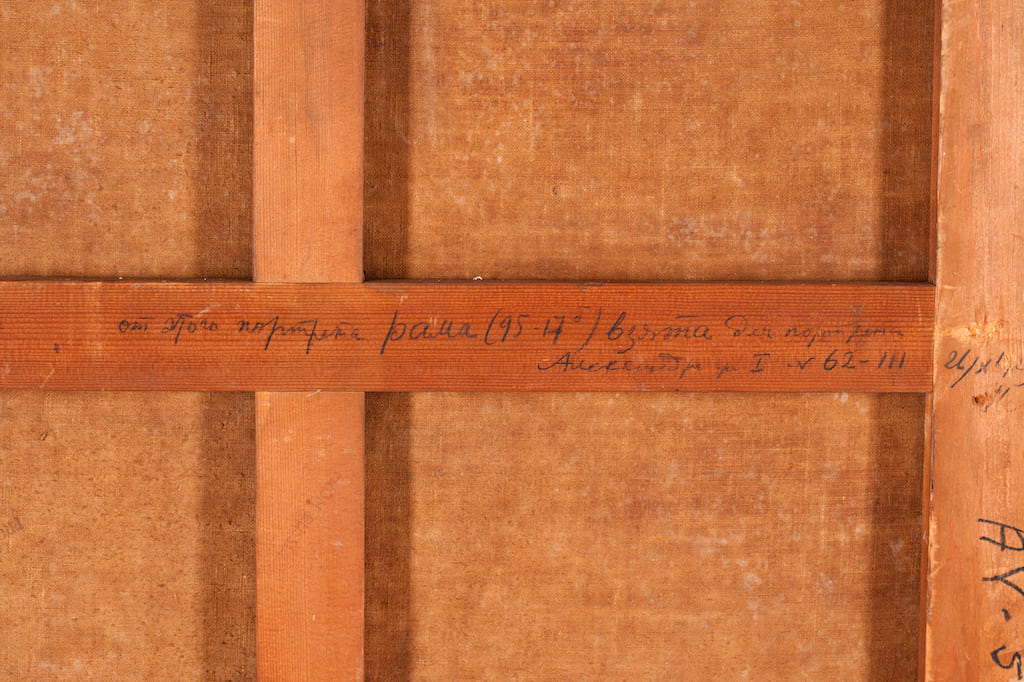 от этого портрета рама (95-17⁵) взята для портрета
Александра I № 62-III
AY.5